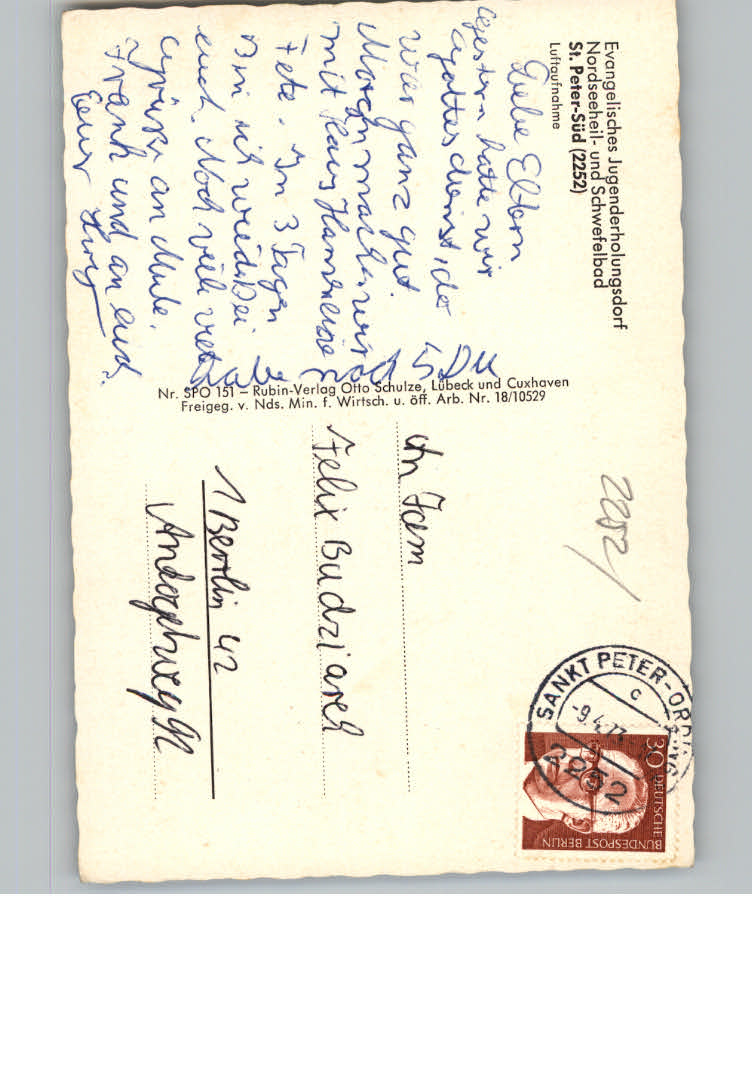 Evangelisches Jugenderholungsdorf
Nordseeheil- und Schwefelbad
St. Peter-Süd (2252)
Luftaufnahme
Liebe Eltern
Gestern hatte wir
Gottesdienst, der
war ganz gut.
Morgen machen wir
mit Haus
Fete. In 3 Tagen
Bin ich wieder Bei
euch. Noch viele viele
Grüße an Mute.
Frank und an euch.
Euer
habe noch 5 DM
Nr. SPO 151 – Rubin-Verlag Otto Schulze, Lübeck und Cuxhaven
Freigeg. v. Nds. Min. f. Wirtsch. u. öff. Arb. Nr. 18/10529
2252
An Fam
Felix
1 Berlin 42
SANKT PETER-ORDING
c
-9.4.
2252
30 DEUTSCHE
BUNDESPOST BERLIN